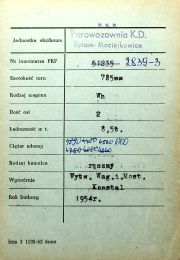 P. K. P.
Jednostka służbowa
Parowozownia K.D.
Bytom-Maciejkowice
Nr inwentarza PKP 51835 2839-3
Szerokość toru 785mm
Rodzaj wagonu Wh
Ilość osi 2
Ładowność w t. 8,5t.
Ciężar własny
Rodzaj hamulca ręczny
Wytwórnia Wytw. Wag.i Most.
Konstal
Rok budowy 1954r.